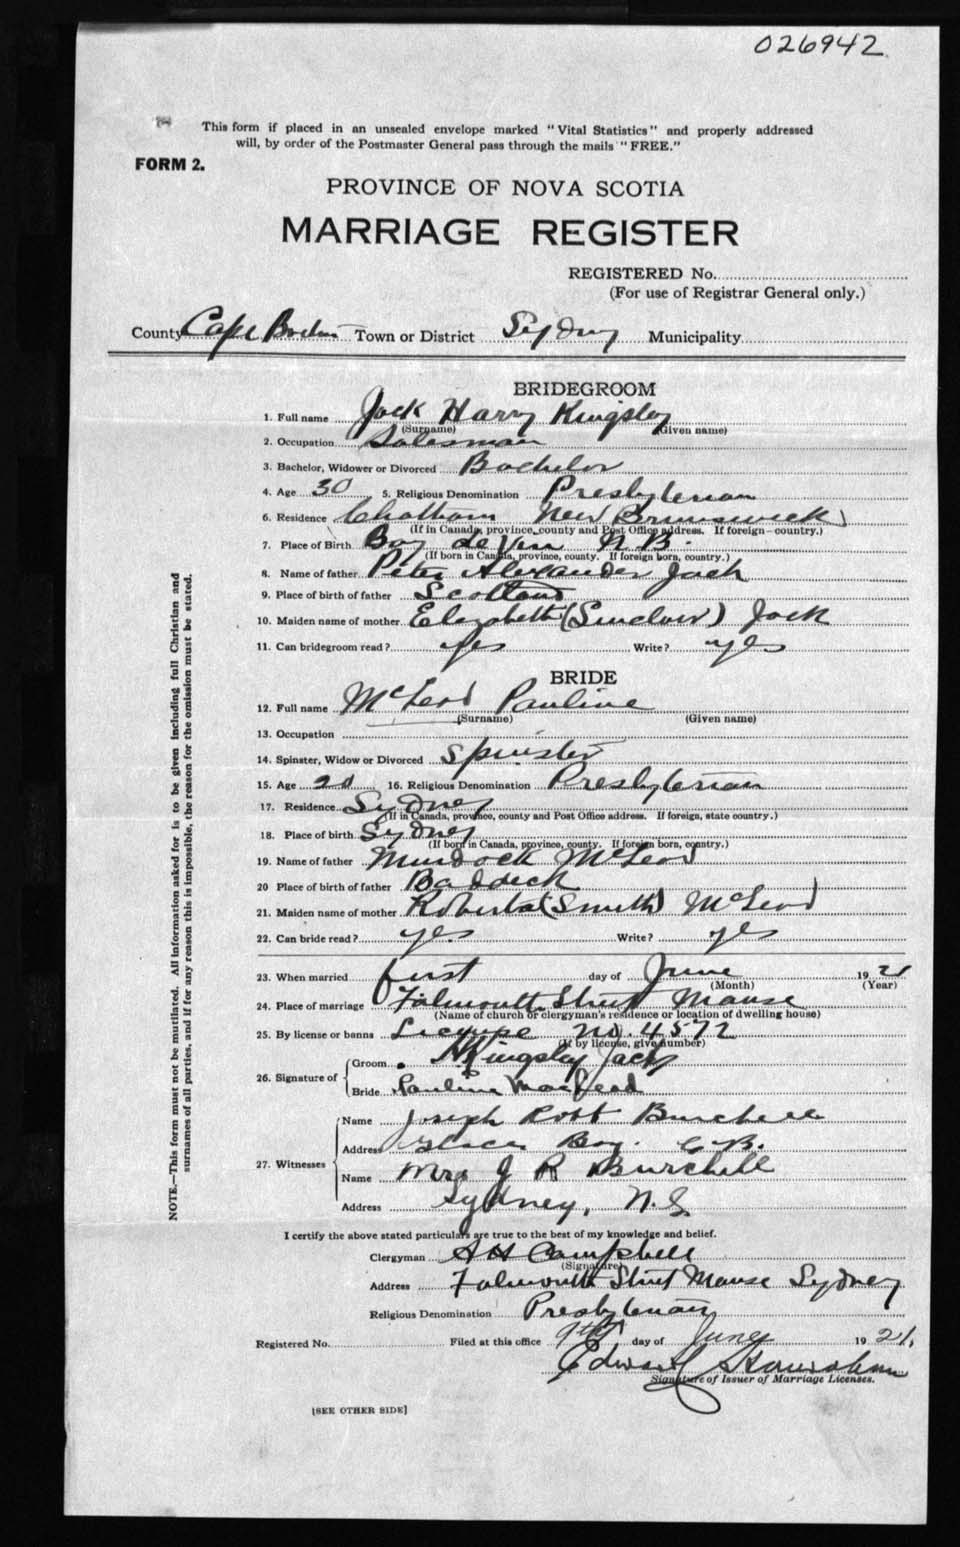 026942
This form if placed in an unsealed envelope marked "Vital Statistics" and properly addressed
will, by order of the Postmaster General pass through the mails "FREE."
FORM 2.
PROVINCE OF NOVA SCOTIA
MARRIAGE REGISTER
REGISTERED No.
(For use of Registrar General only.)
County Cape Breton Town or District Sydney Municipality
BRIDEGROOM
1. Full name Jack Harry Kingsley
(Surname) (Given name)
2. Occupation Salesman
3. Bachelor, Widower or Divorced Bachelor
4. Age 30 5. Religious Denomination Presbyterian
6. Residence Chatham New Brunswick
(If in Canada, province, county and Post Office address. If foreign—country.)
7. Place of Birth Bay du Vin N.B.
(If born in Canada, province, county. If foreign born, country.)
8. Name of father Peter Alexander Jack
9. Place of birth of father Scotland
10. Maiden name of mother Elizabeth (Sinclair) Jack
11. Can bridegroom read? yes Write? yes
BRIDE
12. Full name McLeod Pauline
(Surname) (Given name)
13. Occupation
14. Spinster, Widow or Divorced Spinster
15. Age 20 16. Religious Denomination Presbyterian
17. Residence Sydney
(If in Canada, province, county and Post Office address. If foreign, state country.)
18. Place of birth Sydney
(If born in Canada, province, county. If foreign born, country.)
19. Name of father Murdock McLeod
20 Place of birth of father Baddeck
21. Maiden name of mother Roberta (Smith) McLeod
22. Can bride read? yes Write? yes
23. When married first day of June 1921
(Month) (Year)
24. Place of marriage Falmouth Street Manse
(Name of church or clergyman's residence or location of dwelling house)
25. By license or banns License no. 4572
(If by license, give number)
26. Signature of
Groom H Kingsley Jack
Bride Pauline MacLeod
27. Witnesses
Name Joseph Robb Burchell
Address Glace Bay. C.B.
Name Mrs J R Burchell
Address Sydney, N.S.
I certify the above stated particulars are true to the best of my knowledge and belief.
Clergyman A H Campbell
(Signature)
Address Falmouth Street Manse Sydney
Religious Denomination Presbyterian
Registered No. Filed at this office 9th day of June 1921.
Edward
Signature of Issuer of Marriage Licenses.
[SEE OTHER SIDE]
NOTE.—This form must not be mutilated. All information asked for is to be given including full Christian and
surnames of all parties, and if for any reason this is impossible, the reason for the omission must be stated.